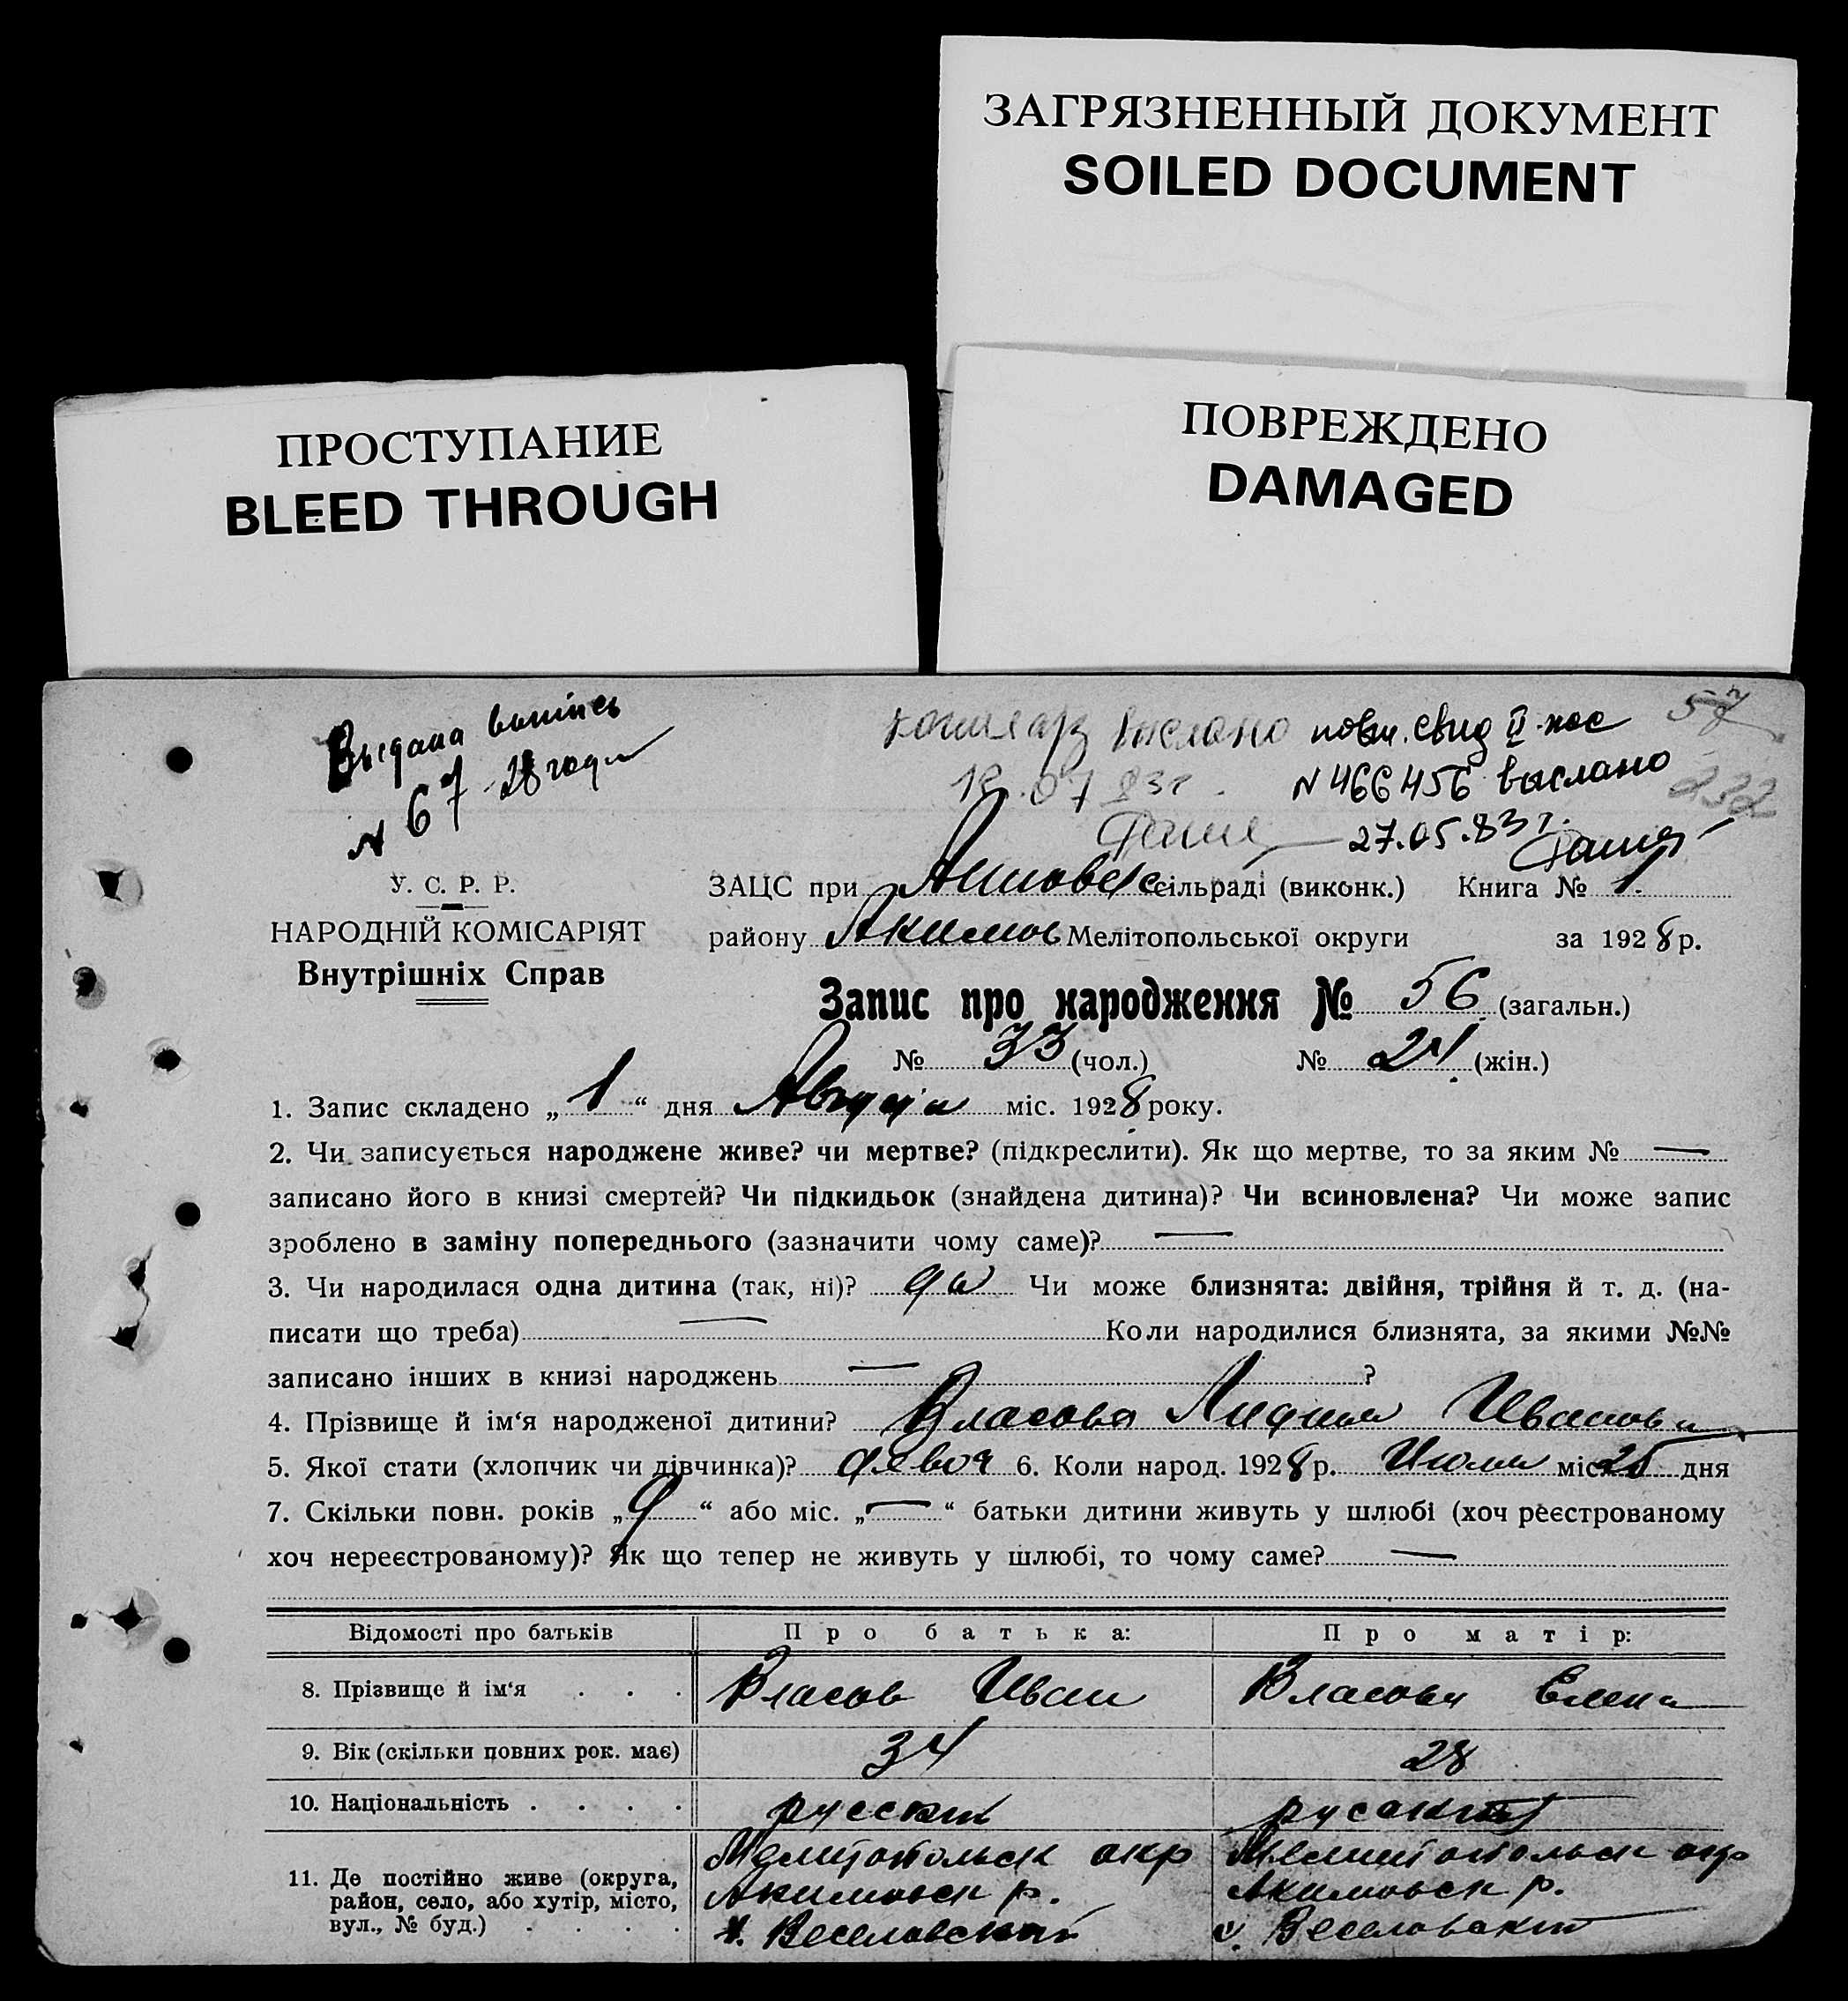 ЗАГРЯЗНЕННЫЙ ДОКУМЕНТ
SOILED DOCUMENT
ПРОСТУПАНИЕ
BLEED THROUGH
ПОВРЕЖДЕНО
DAMAGED
Выдана выпись
N 67 28 года
выслано повт. свид II нос
N 466456 выслано
27.05.83г.
57
232
У. С. Р. Р.
НАРОДНІЙ КОМІСАРІЯТ
Внутрішніх Справ
ЗАЦС при сільраді (виконк.) Книга № 1
району Акимов Мелітопольської округи за 1928 р.
Запис про народження № 56 (загальн.)
№ 33 (чол.) № 24 (жін.)
1. Запис складено „ 1 “ дня Августа міс. 1928 року.
2. Чи записується народжене живе? чи мертве? (підкреслити). Як що мертве, то за яким № —
записано його в книзі смертей? Чи підкидьок (знайдена дитина)? Чи всиновлена? Чи може запис
зроблено в заміну попереднього (зазначити чому саме)? —
3. Чи народилася одна дитина (так, ні)? да Чи може близнята: двійня, трійня й т. д. (на-
писати що треба) — Коли народилися близнята, за якими №№
записано інших в книзі народжень — ?
4. Прізвище й ім‘я народженої дитини? Власова Лидия Ивановна
5. Якої стати (хлопчик чи дівчинка)? девоч 6. Коли народ. 1928 р. Июля міс 25 дня
7. Скільки повн. років „ 9 “ або міс. „ — “ батьки дитини живуть у шлюбі (хоч реєстрованому
хоч нереєстрованому)? Як що тепер не живуть у шлюбі, то чому саме? —
Відомості про батьків Про батька: Про матір:
8. Прізвище й ім‘я . . . Власов Иван Власова Елена
9. Вік (скільки повних рок. має) 34 28
10. Національність . . . . русский русский
11. Де постійно живе (округа, район, село, або хутір, місто, вул., № буд.) . . . .
Мелитопольск окр Мелитопольск окр
Акимовск р. Акимовск р.
х. Веселовский х. Веселовский